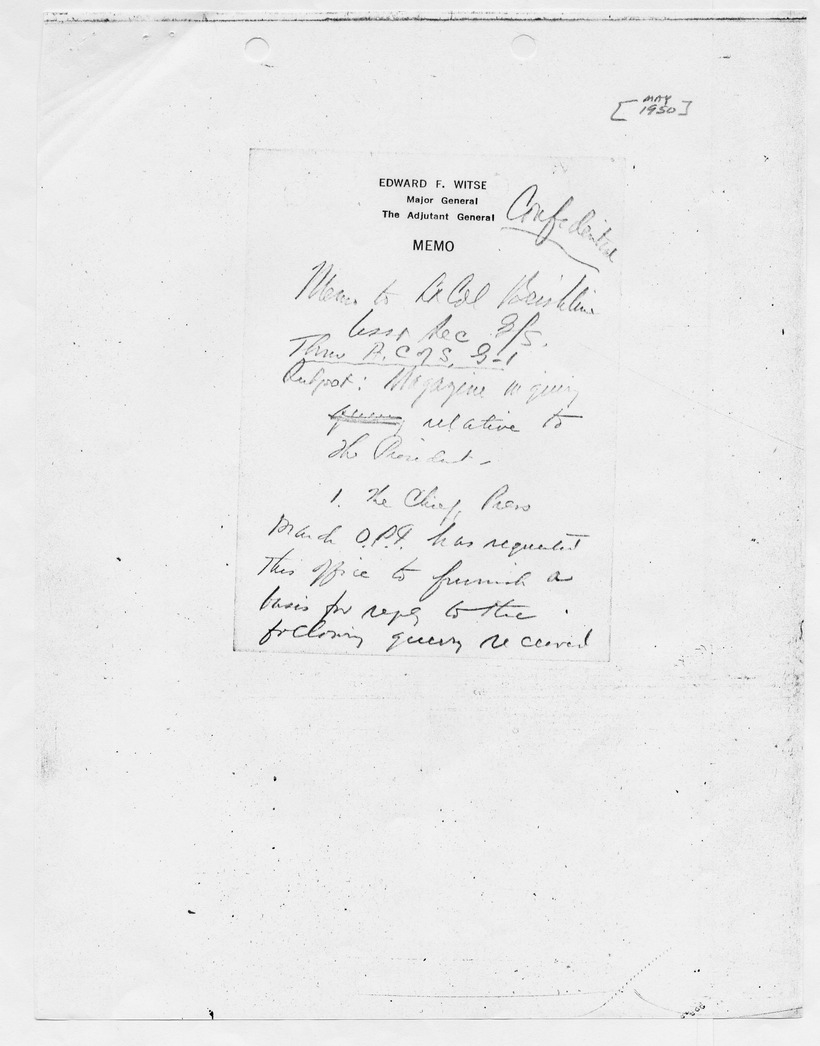 [MAY
1950]
EDWARD F. WITSE
Major General
The Adjutant General
Confidential
MEMO
Memo to Lt Col
Asst Sec G/S.
Thru A.C of S. G-1
Subject: Magazine inquiry
query relative to
The President.
1. The Chief, Press
Branch O.P.I. has requested
This office to furnish a
basis for reply to the
following query received